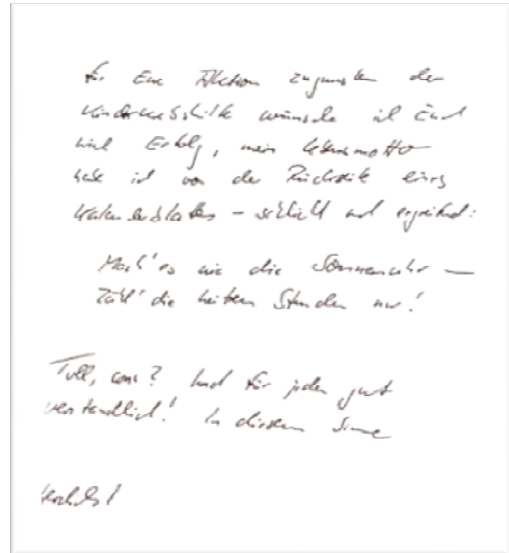 für Eure Aktion zugunsten der
Kinderkrebshilfe wünsche ich Euch
viel Erfolg, mein Lebensmotto
habe ich von der Rückseite eines
Kalenderblattes – schlicht und ergreifend:
Mach's wie die Sonnenuhr –
Zähl' die heiteren Stunden nur!
Toll, was? Und für jeden gut
verständlich! In diesem Sinne